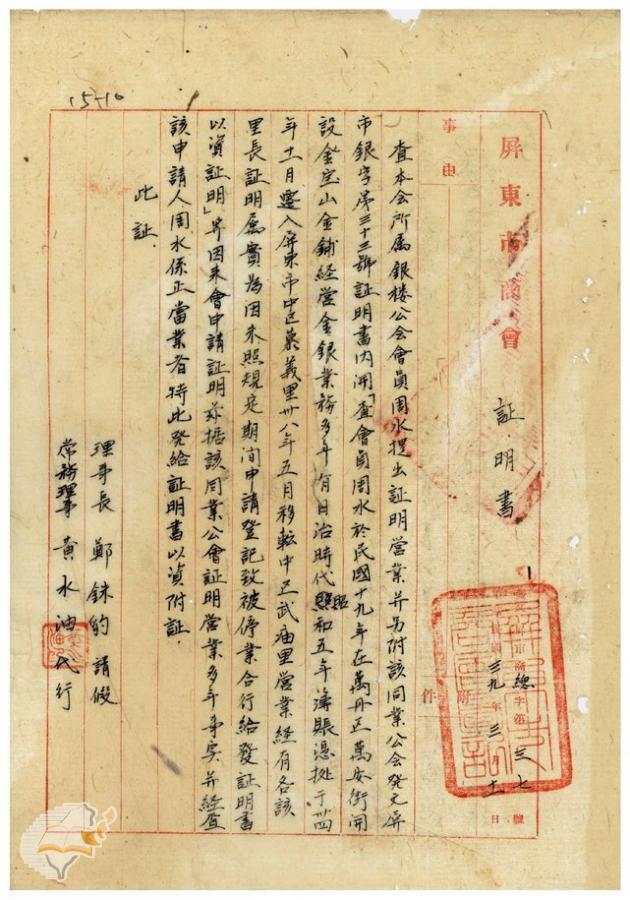 15-10
屏東市商會 証明書
屏市商總字第三七號
民國三九年三月十一日
事由
附件
查本会所属銀楼公会會員周水提出証明營業并另附該同業公会発文屏
市銀字第三十三號証明書内開「查會員周水於民國十九年在萬丹正萬安街開
設金宝山金鋪経営金銀業務多年有日治時代昭和五年簿賬憑挺于卅四
年十一月遷入屏東市中区崇義里卅八年五月移転中正武庙里営業経有各該
里長証明属實為因未照規定期间申請登記致被停業合行給發証明書
以資証明」等因来會申請証明茲据該同業公會証明営業多年事实并経查
該申請人周水係正當業者特此発給証明書以資附証．
此証．
理事長 鄭銇釣 請假
常務理事 黄水油代行